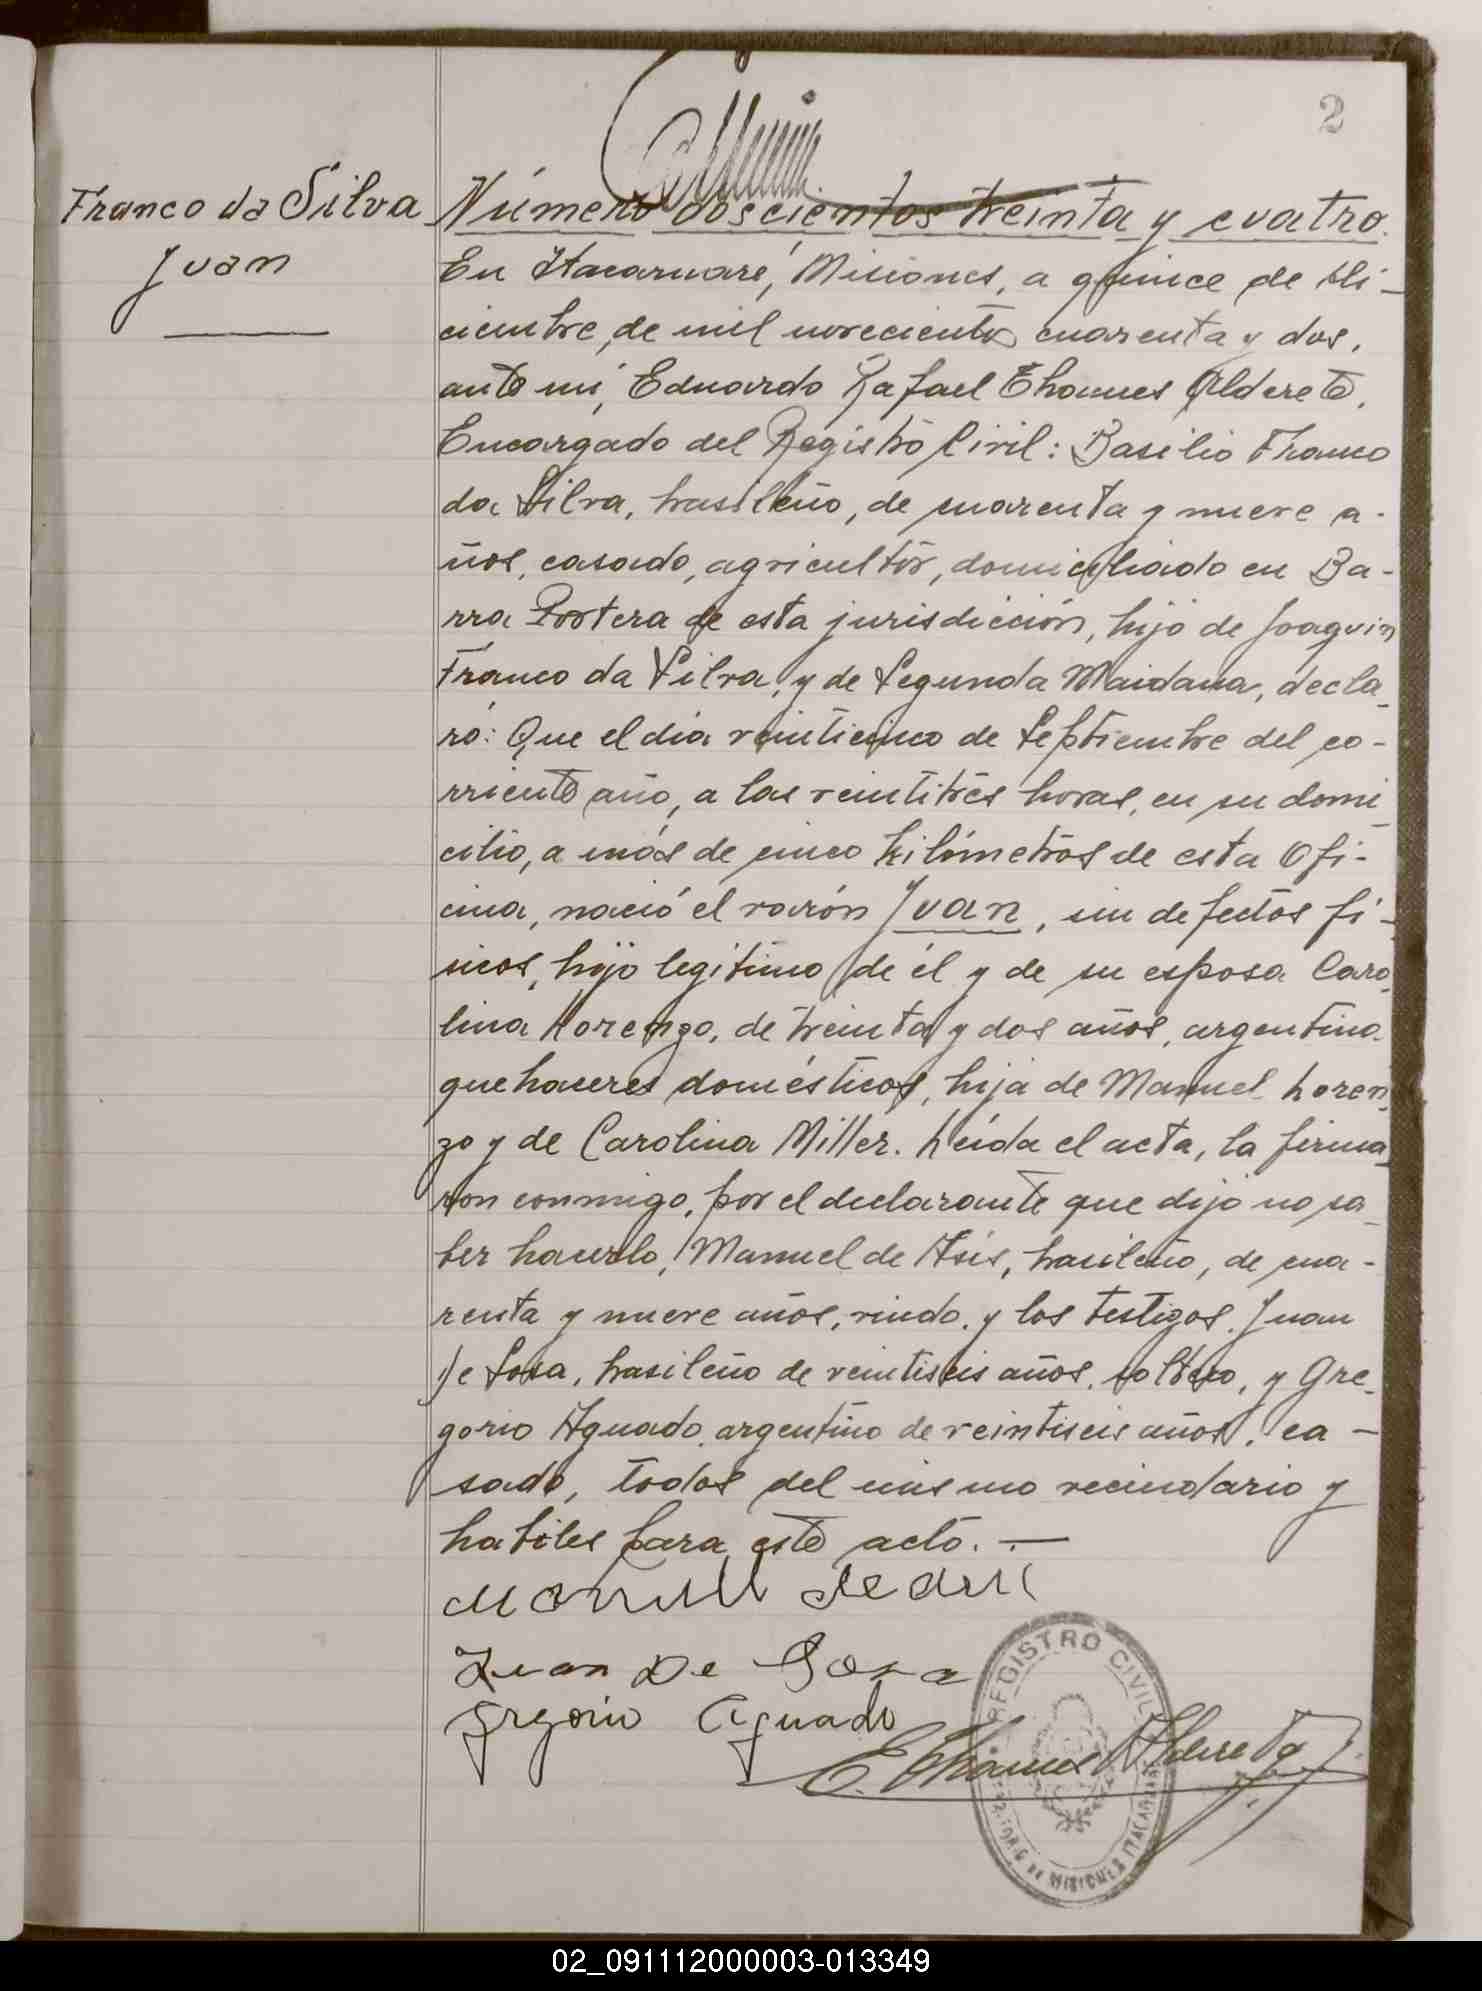 2
Franco da Silva
Juan
Número doscientos treinta y cuatro.
En Itacaruaré, Misiones, a quince de di-
ciembre, de mil novecientos cuarenta y dos,
ante mí, Eduardo Rafael Thames Alderete,
Encargado del Registro Civil: Basilio Franco
da Silva, brasileño, de cuarenta y nueve a-
ños, casado, agricultor, domiciliado en Ba-
rra Portera de esta jurisdicción, hijo de Joaquin
Franco da Silva, y de Segunda Maidana, decla-
ró: Que el día veinticinco de Septiembre del co-
rriente año, a las veintitrés horas, en su domi-
cilio, a más de cinco kilómetros de esta Ofi-
cina, nació el varón Juan, sin defectos fí-
sicos, hijo legítimo de él y de su esposa Caro-
lina Lorenzo, de treinta y dos años, argentina,
quehaceres domésticos, hija de Manuel Loren-
zo y de Carolina Miller. Leída el acta, la firma-
ron conmigo, por el declarante que dijo no sa-
ber hacerlo, Manuel de Asis, brasileño, de cua-
renta y nueve años, viudo, y los testigos, Juan
De Sosa, brasileño de veintiseis años, soltero, y Gre-
gorio Aguado, argentino de veintiseis años, ca-
sado, todos del mismo vecindario y
habiles para este acto. —
Manuel de Asis
Juan De Sosa
Gregorio Aguado
E. Thames Alderete
REGISTRO CIVIL
TERRITORIO DE MISIONES ITACARUARÉ
02_091112000003-013349